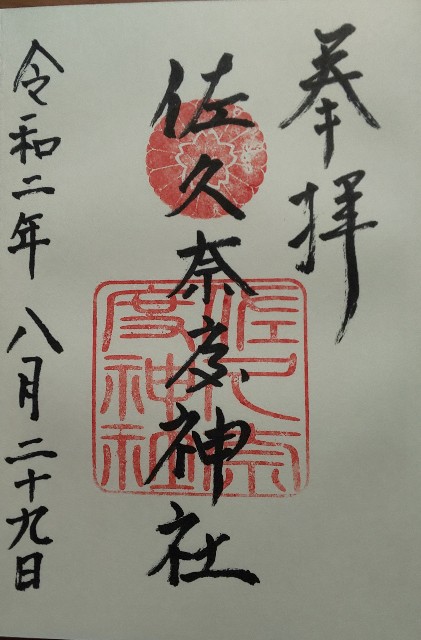 奉拝
佐久奈度神社
佐久奈度神社
令和二年 八月二十九日